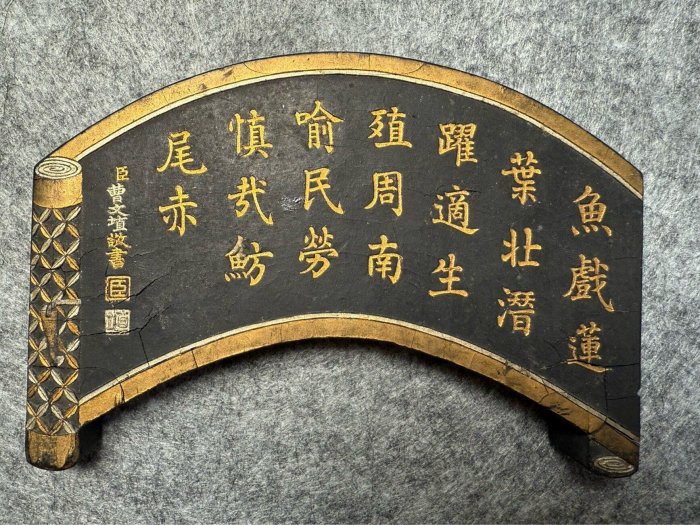 魚戲蓮
葉壯潛
躍適生
殖周南
喻民勞
慎哉魴
尾赤
臣曹文埴敬書
臣
埴